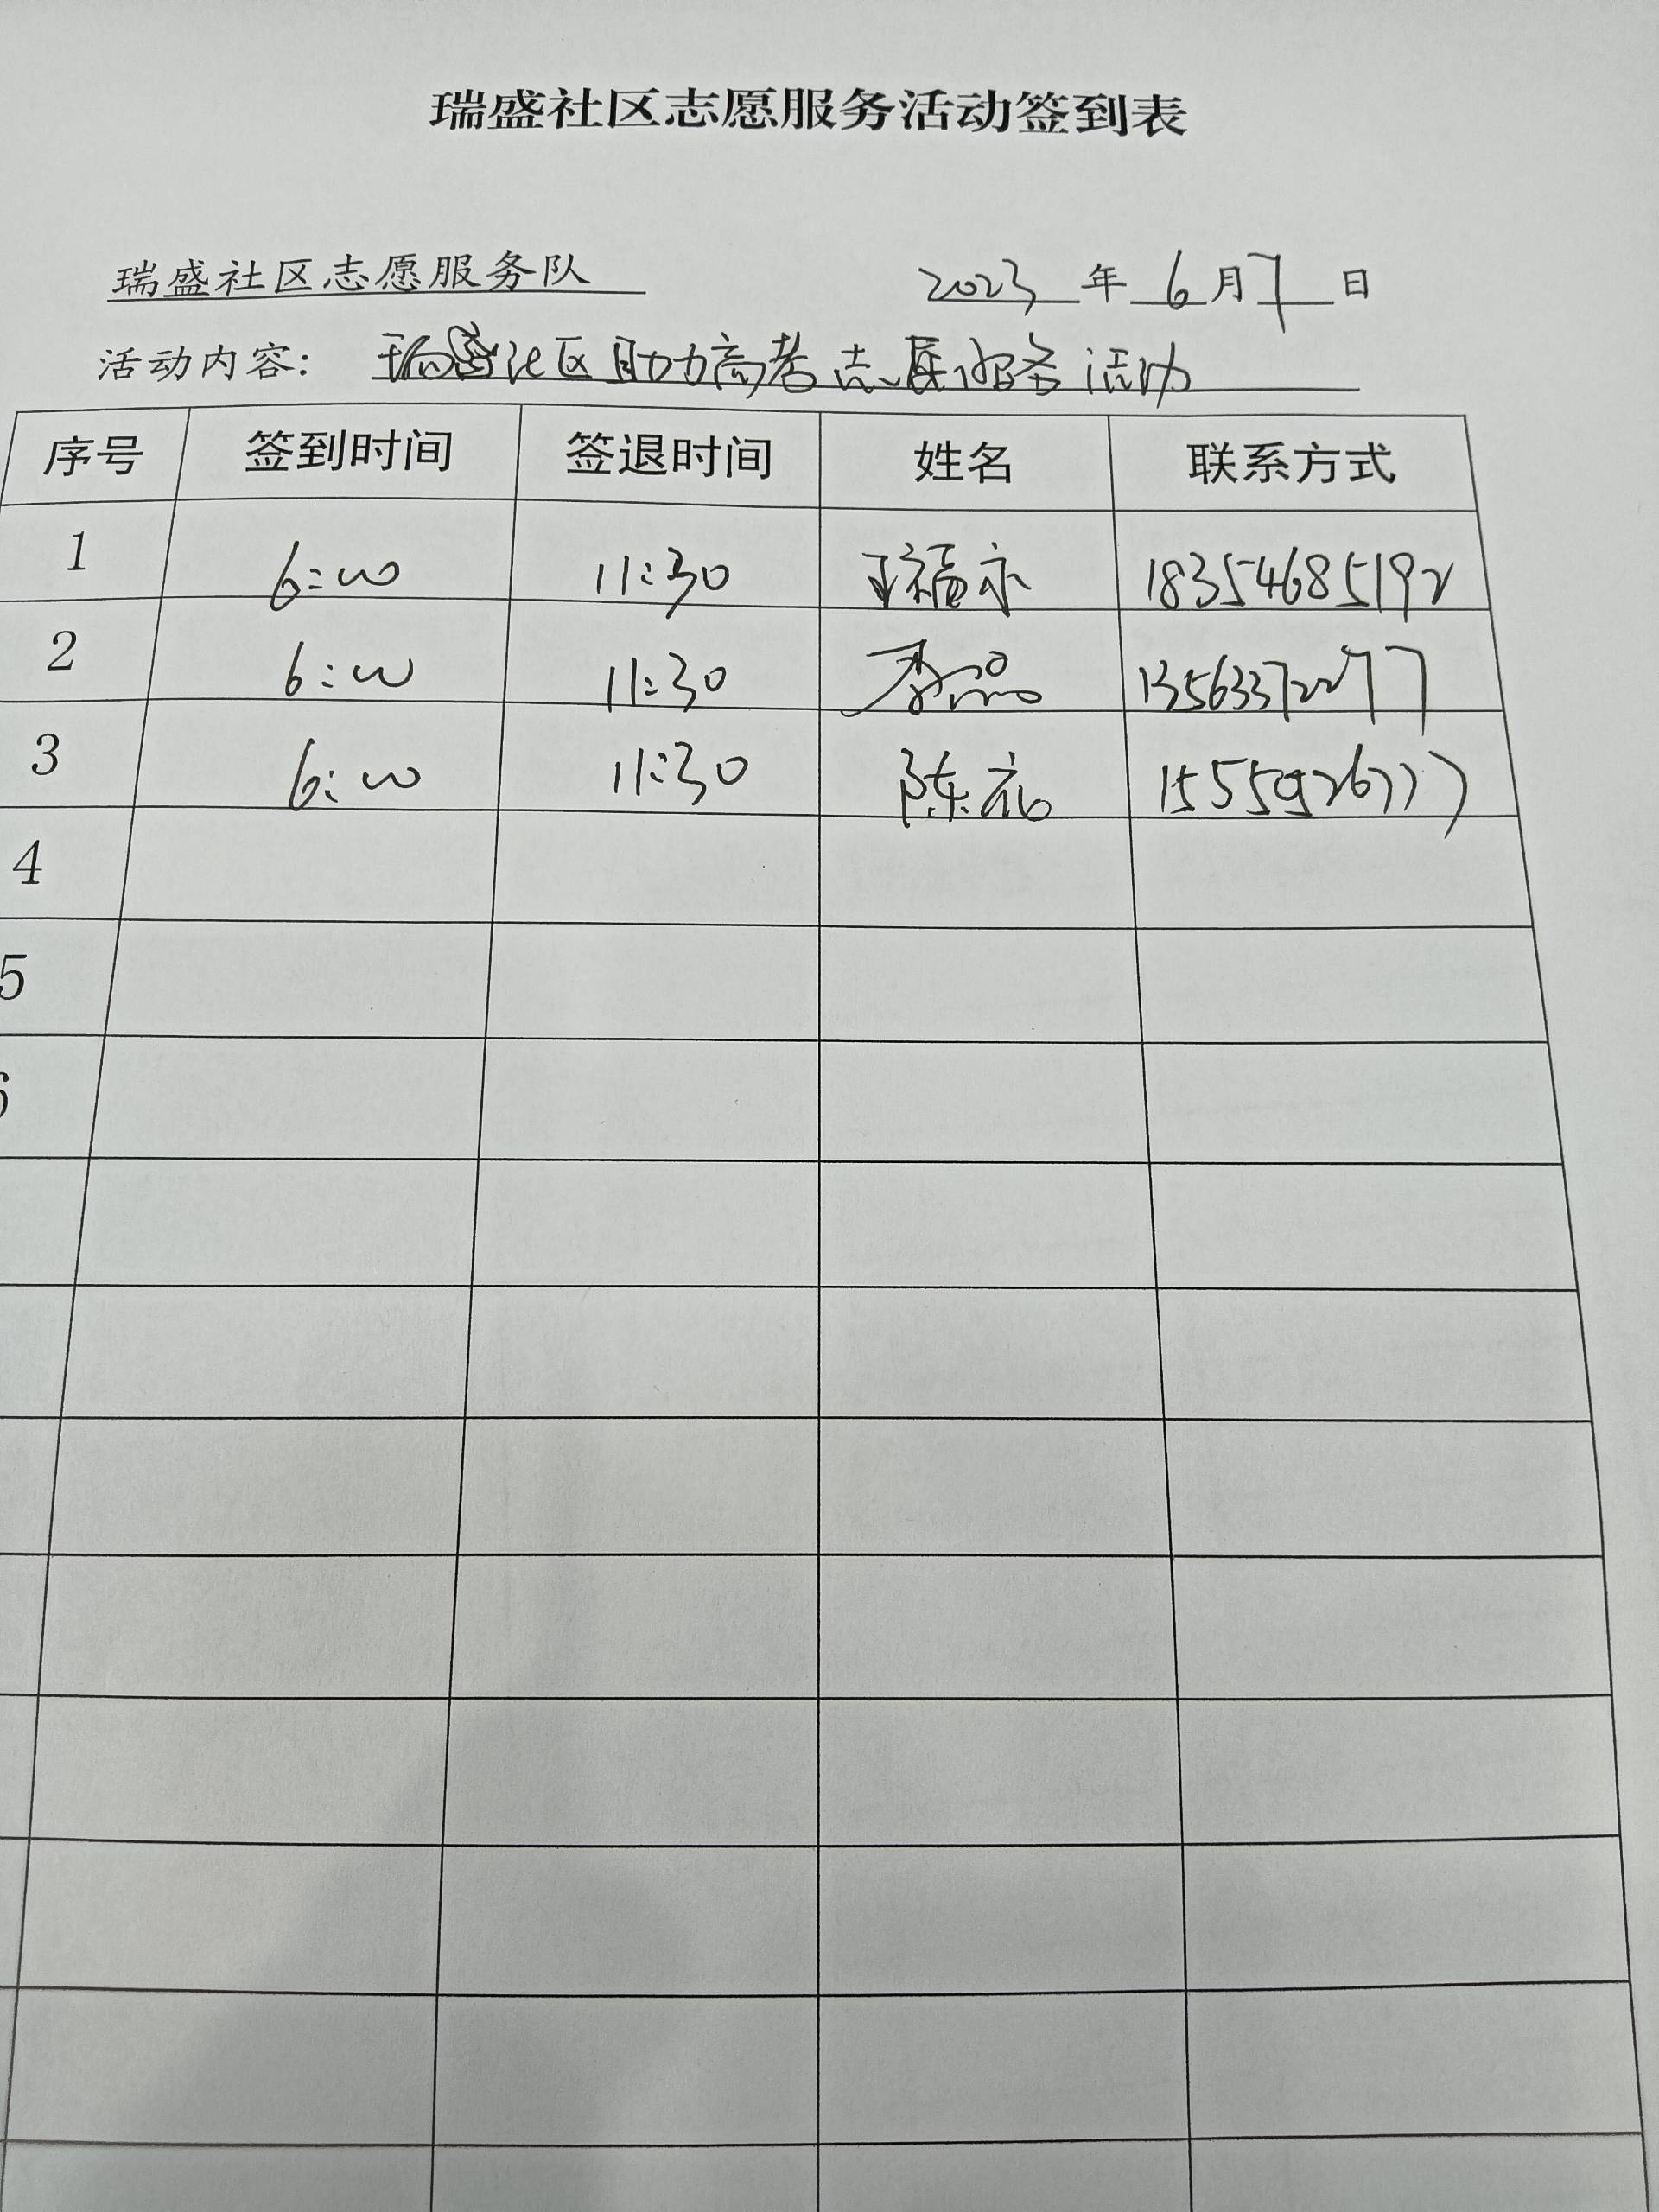 瑞盛社区志愿服务活动签到表
瑞盛社区志愿服务队 2023 年 6 月 7 日
活动内容: 瑞盛社区助力高考志愿服务活动
序号 签到时间 签退时间 姓名 联系方式
1 6:00 11:30 王福永 18354685192
2 6:00 11:30 李品 13563372277
3 6:00 11:30 陈 15559267777
4
5
6